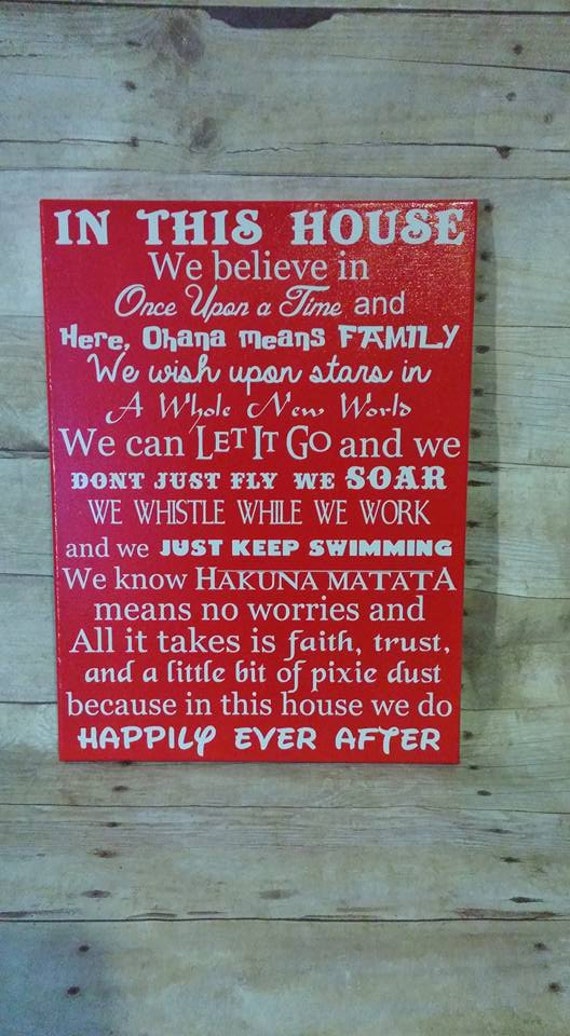 IN THIS HOUSE
We believe in
Once Upon a Time and
Here, Ohana means FAMILY
We wish upon stars in
A Whole New World
We can LET IT GO and we
DONT JUST FLY WE SOAR
WE WHISTLE WHILE WE WORK
and we JUST KEEP SWIMMING
We know HAKUNA MATATA
means no worries and
All it takes is faith, trust,
and a little bit of pixie dust
because in this house we do
HAPPILY EVER AFTER